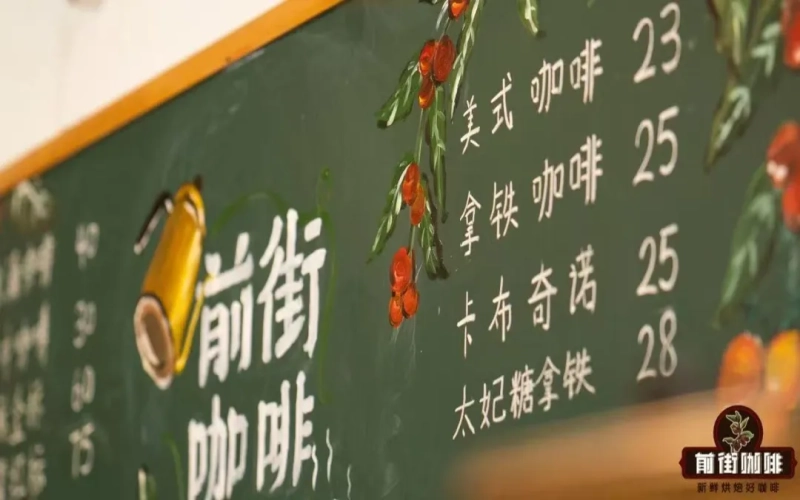 40
30
60
75
前街
咖啡
美式咖啡 23
拿铁咖啡 25
卡布奇诺 25
太妃糖拿铁 28
前街咖啡
新鲜烘焙好咖啡